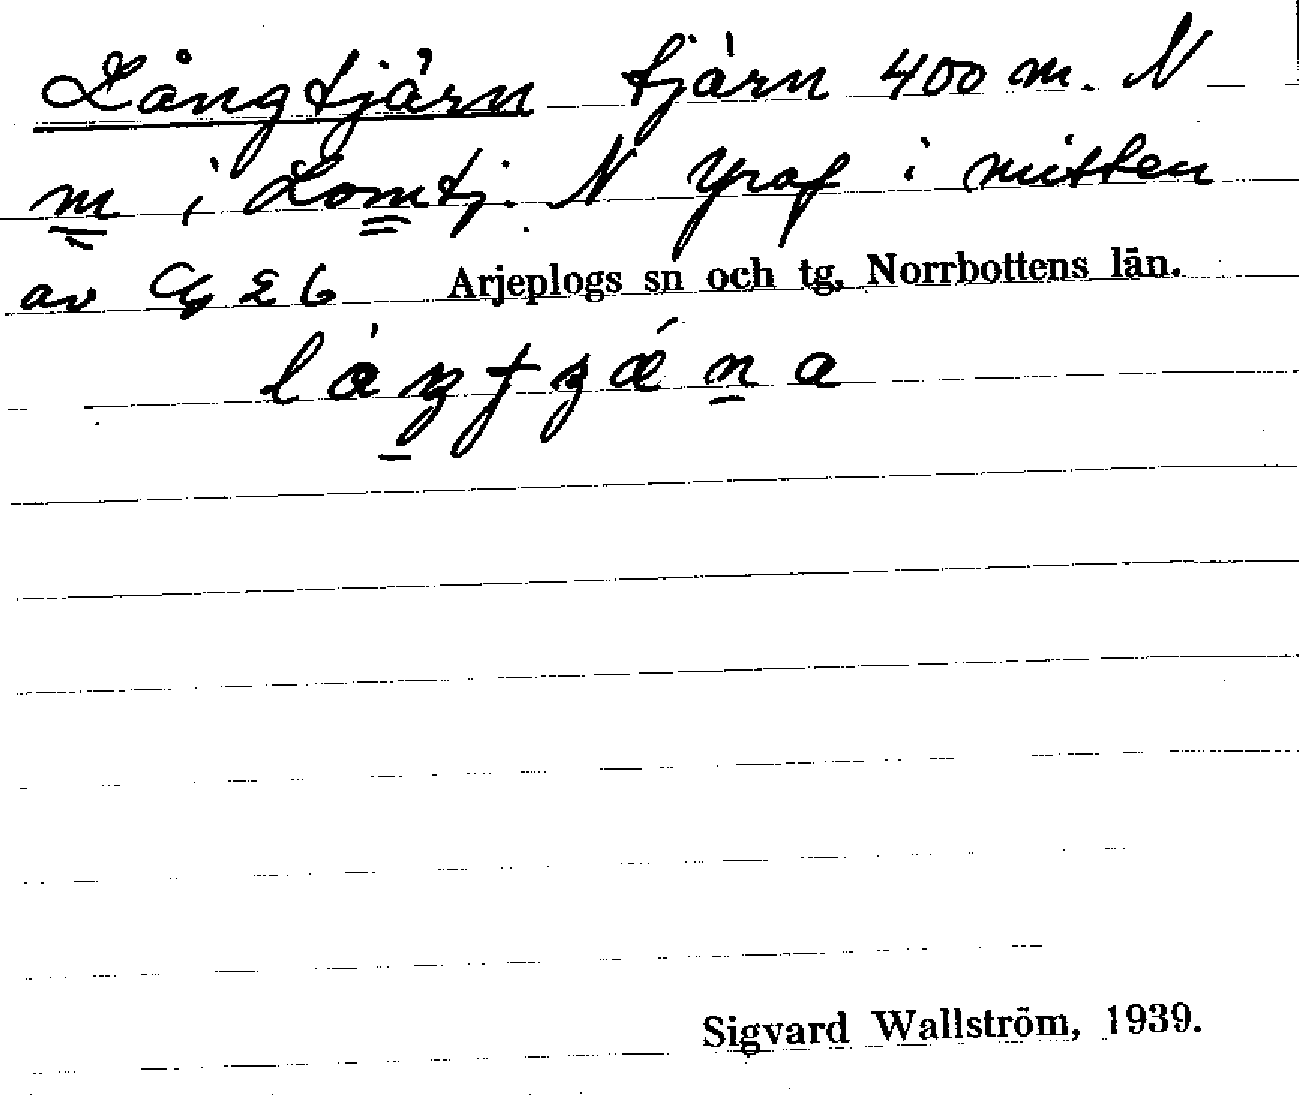 Långtjärn tjärn 400 m. N
m i Lomtj. N Yraf i mitten
av Cg 26 Arjeplogs sn och tg, Norrbottens län.
Sigvard Wallström, 1939.